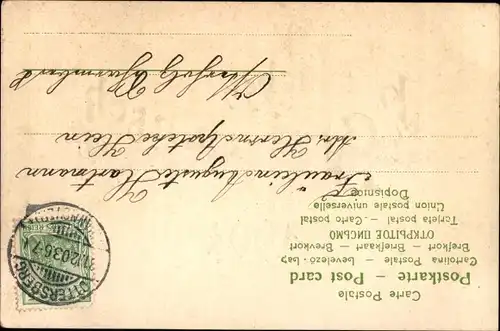 Carte Postale
Postkarte – Post card
Cartolina Postale – bevelező-lap
Brefkort – Briefkaart – Brevkort
ОТКРЫТОЕ ПИСЬМО
Tarjeta postal – Carto postal
Union postale universelle
Dopisnice
Fräulein Auguste Hartmann
Adr. Herrn Apotheke Hein
OTTERSBERG